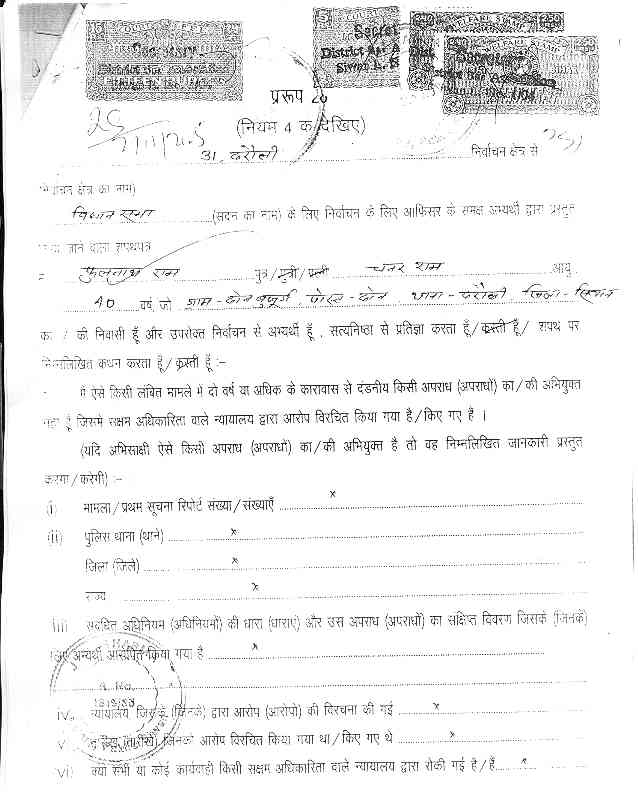 प्ररूप 26
(नियम 4 क देखिए)
31. दरौली निर्वाचन क्षेत्र से
निर्वाचन क्षेत्र का नाम)
विधान सभा (सदन का नाम) के लिए निर्वाचन के लिए आफिसर के समक्ष अभ्यर्थी द्वारा प्रस्तुत
जाने वाला शपथपत्र
फुलनाथ राम पुत्र/पुत्री/पत्नी राम आयु
40 वर्ष, जो ग्राम-दोन बुजुर्ग पोस्ट-दोन थाना-दरौली जिला-सिवान
का / की निवासी हूँ और उपरोक्त निर्वाचन से अभ्यर्थी हूँ, सत्यनिष्ठा से प्रतिज्ञा करता हूँ/करती हूँ/ शपथ पर
निम्नलिखित कथन करता हूँ/करती हूँ :-
मैं ऐसे किसी लंबित मामले में दो वर्ष या अधिक के कारावास से दंडनीय किसी अपराध (अपराधों) का/की अभियुक्त
हूँ जिसमें सक्षम अधिकारिता वाले न्यायालय द्वारा आरोप विरचित किया गया है/किए गए हैं ।
(यदि अभिसाक्षी ऐसे किसी अपराध (अपराधों) का/की अभियुक्त है तो वह निम्नलिखित जानकारी प्रस्तुत
करेगा/करेगी) :-
(i) मामला/प्रथम सूचना रिपोर्ट संख्या/संख्याएँ x
(ii) पुलिस थाना (थाने) x
जिला (जिले) x
राज्य x
(iii) संबंधित अधिनियम (अधिनियमों) की धारा (धाराएं) और उस अपराध (अपराधों) का संक्षिप्त विवरण जिसके (जिनके)
लिए अभ्यर्थी आरोपित किया गया है x
iv. न्यायालय जिसके (जिनके) द्वारा आरोप (आरोपों) की विरचना की गई x
v (तारीखें) जिनको आरोप विरचित किया गया था/किए गए थे x
vi) क्या सभी या कोई कार्यवाही किसी सक्षम अधिकारिता वाले न्यायालय द्वारा रोकी गई है/हैं x